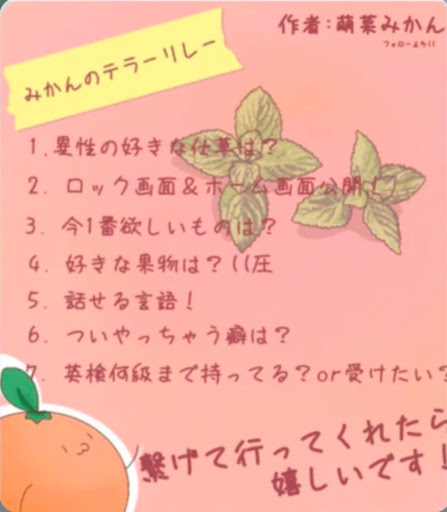 作者:萌菜みかん
フォローよろ((
みかんのテラーリレー
1.異性の好きな仕草は?
2. ロック画面&ホーム画面公開!
3. 今1番欲しいものは?
4. 好きな果物は?((圧
5. 話せる言語!
6. ついやっちゃう癖は?
7. 英検何級まで持ってる?or受けたい?
繋げて行ってくれたら
嬉しいです!